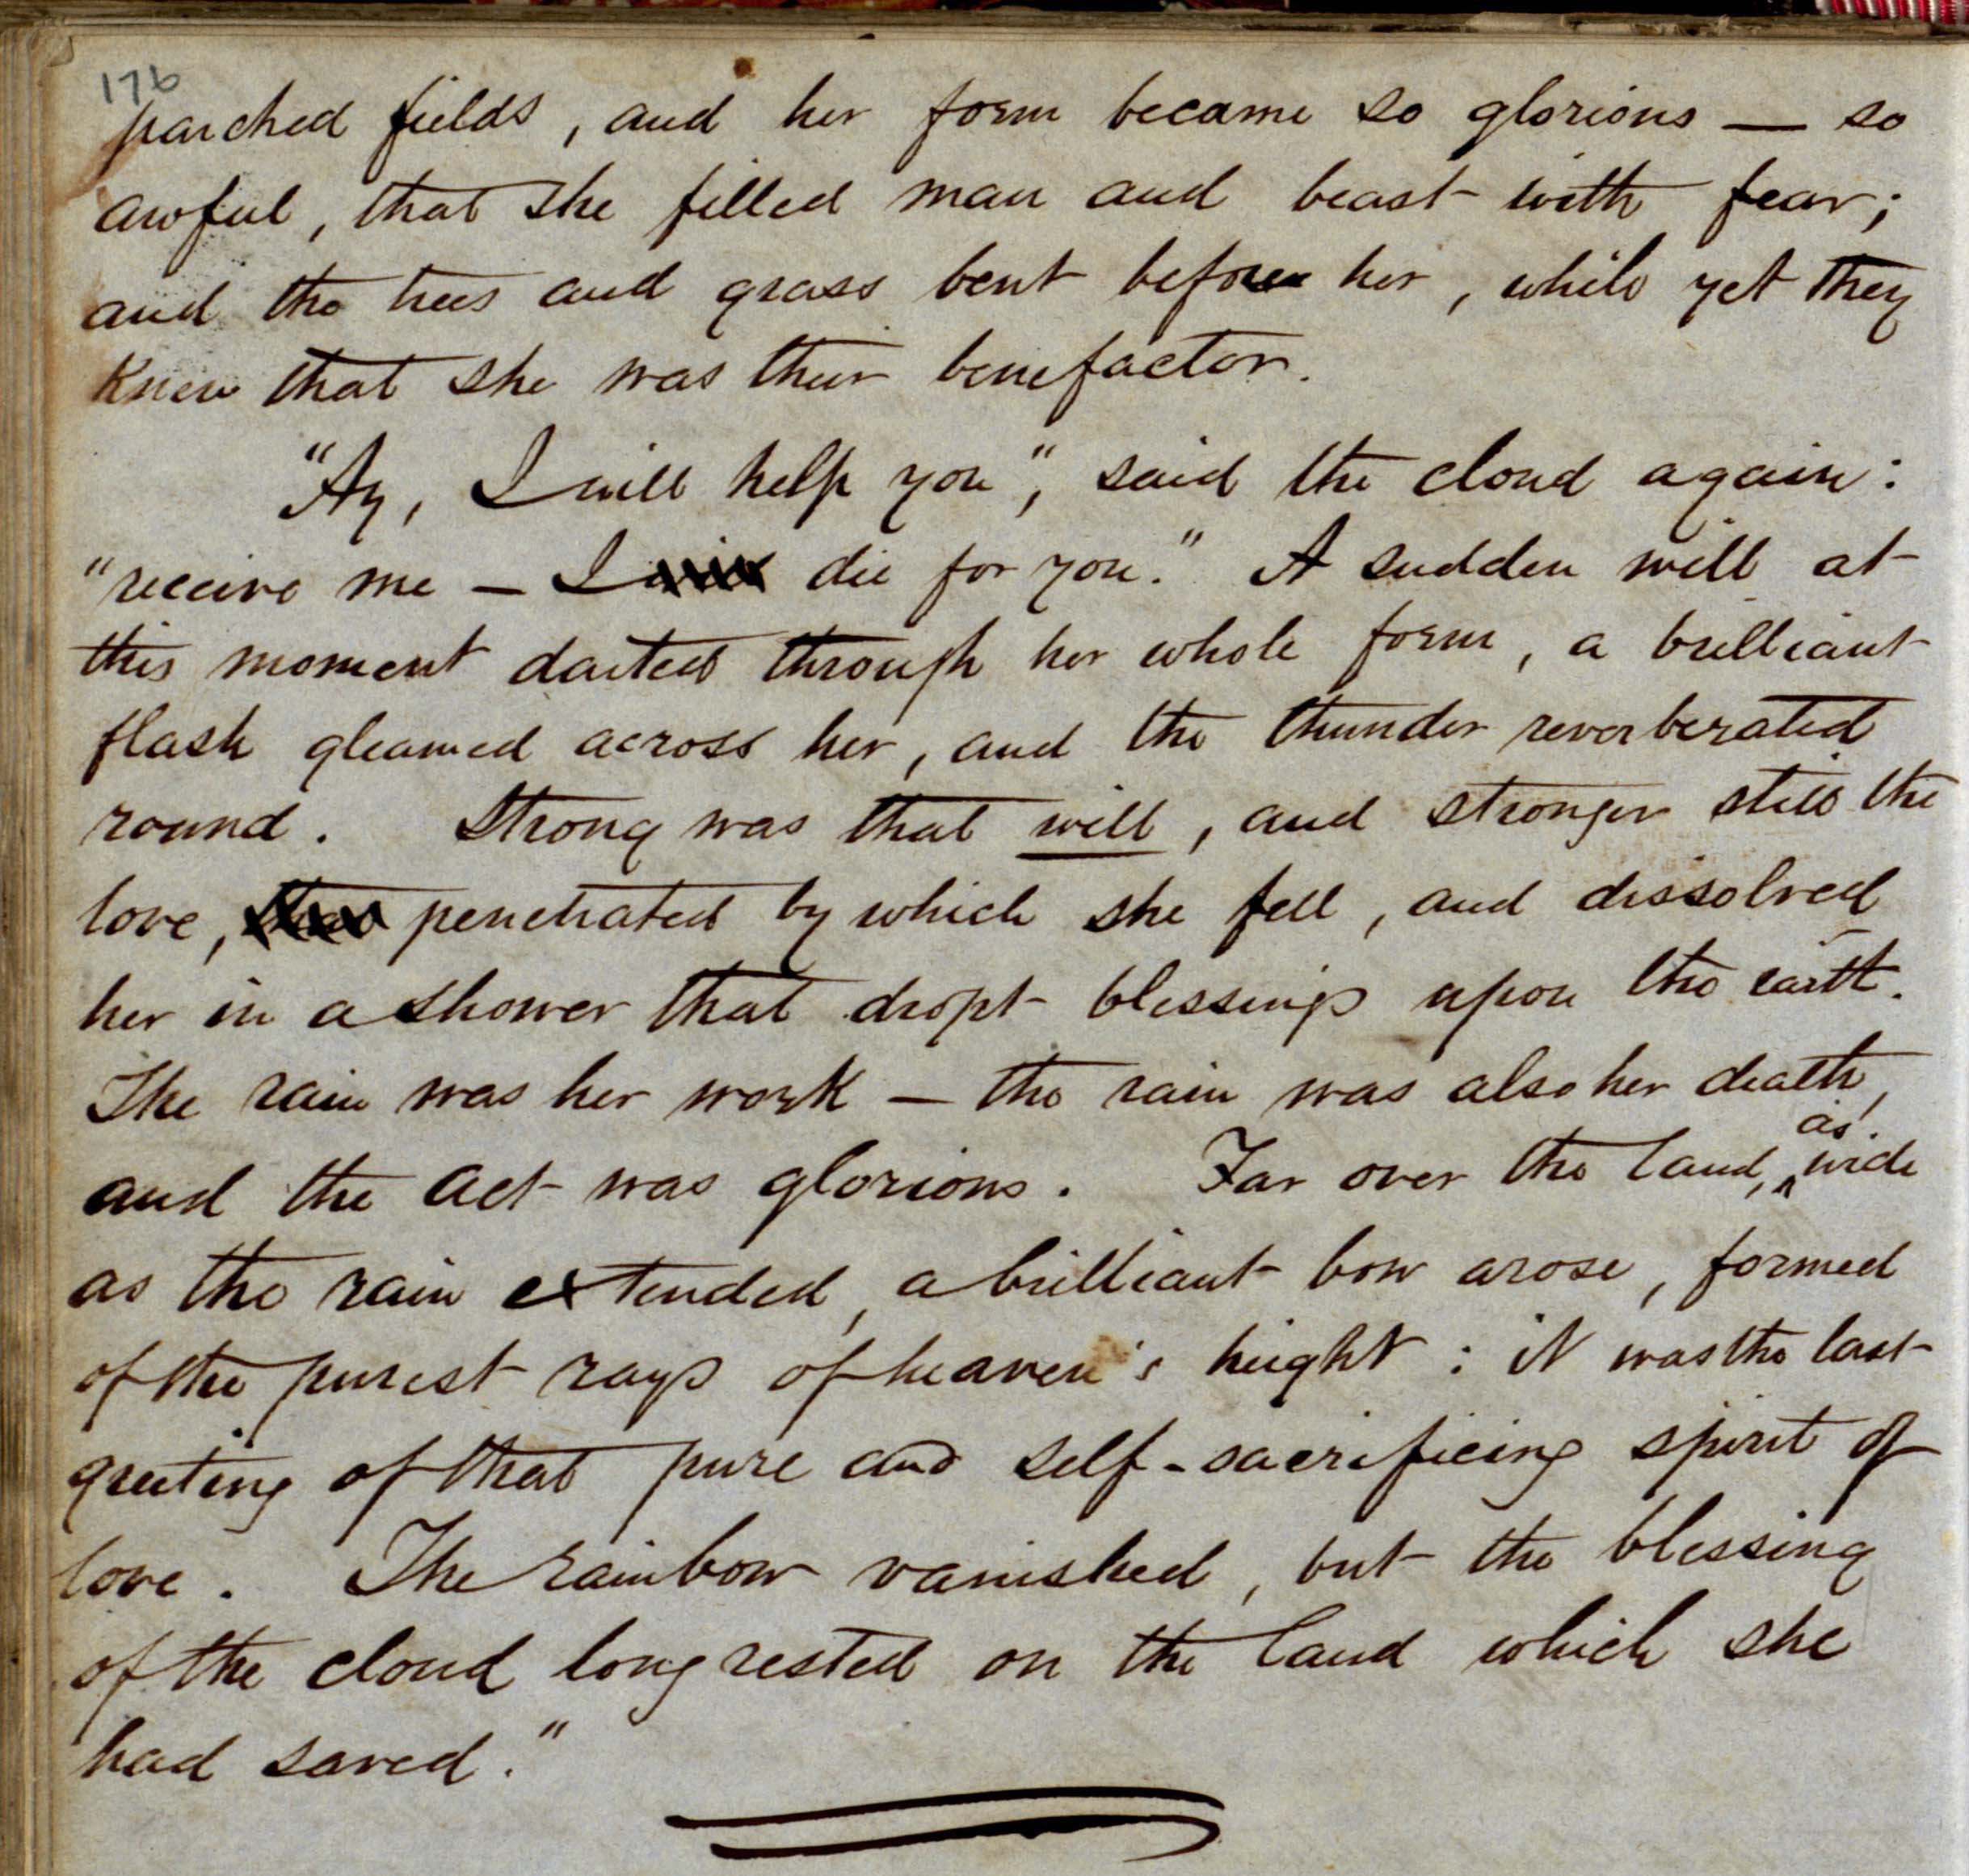 176
parched fields, and her form became so glorious — so
awful, that she filled man and beast with fear;
and the trees and grass bent before her, while yet they
knew that she was their benefactor.
"Ay, I will help you", said the cloud again:
"receive me — I will die for you." A sudden will at
this moment darted through her whole form, a brilliant
flash gleamed across her, and the thunder reverberated
round. Strong was that will, and stronger still the
love, penetrated by which she fell, and dissolved
her in a shower that dropt blessings upon the earth.
The rain was her work — the rain was also her death,
and the act was glorious. Far over the land, as wide
as the rain extended, a brilliant bow arose, formed
of the purest rays of heaven's height: it was the last
greeting of that pure and self-sacrificing spirit of
love. The rainbow vanished, but the blessing
of the cloud long rested on the land which she
had saved."